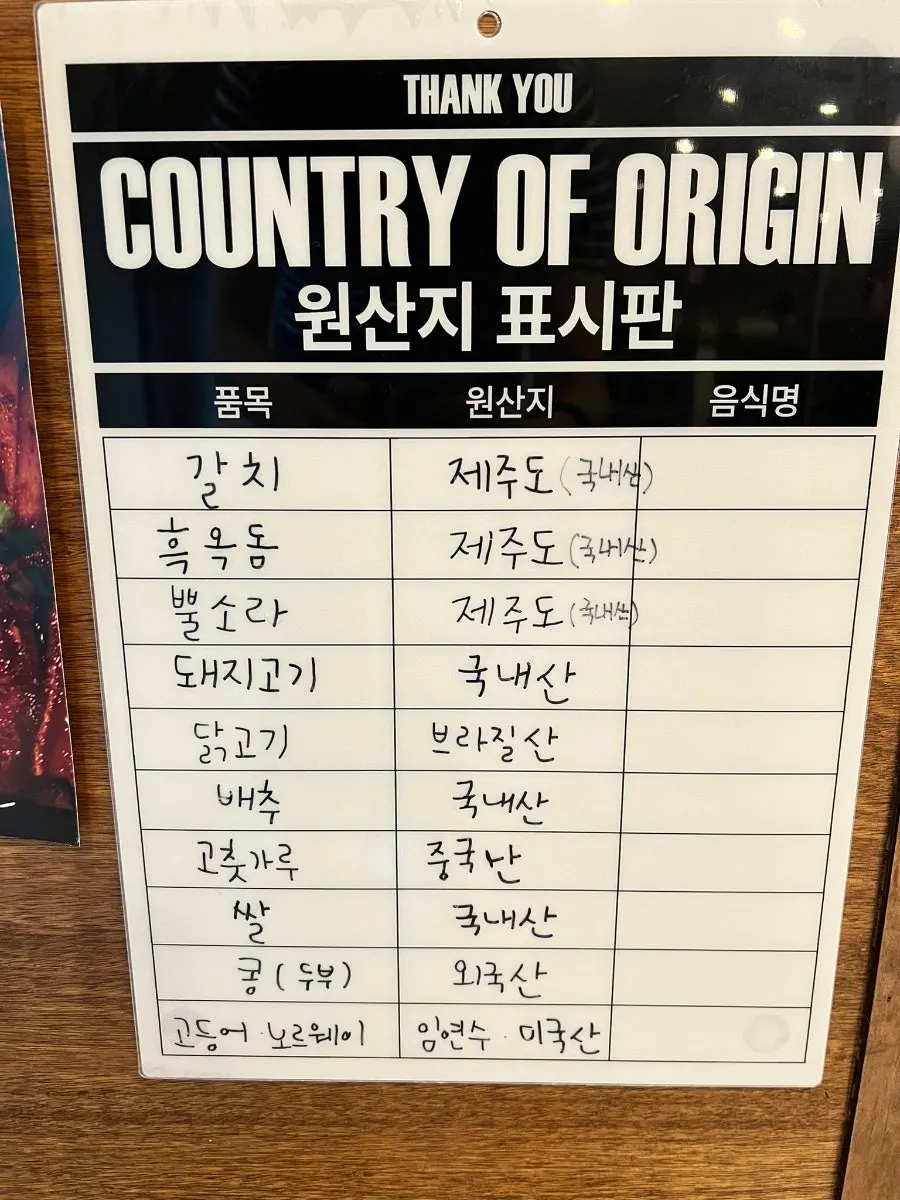 THANK YOU
COUNTRY OF ORIGIN
원산지 표시판
품목 원산지 음식명
갈치 제주도 (국내산)
흑옥돔 제주도 (국내산)
뿔소라 제주도 (국내산)
돼지고기 국내산
닭고기 브라질산
배추 국내산
고춧가루 중국난
쌀 국내산
콩 (두부) 외국산
고등어 · 노르웨이 임연수 · 미국산